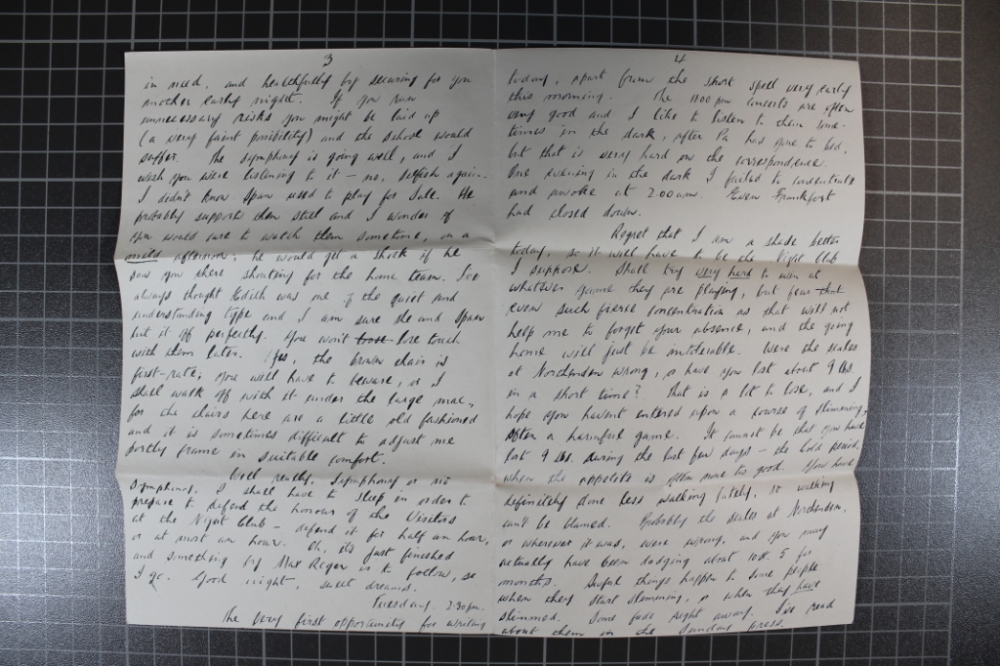 3
in need, and healthfully by securing for you
another early night. If you run
unnecessary risks you might be laid up
(a very faint posibility) and the school would
suffer. The symphony is going well, and I
wish you were listening to it — no, selfish again.
I didn't know Spaw used to play for Sale. He
probably supports them still and I wonder if
you would care to watch them sometime, on a
mild afternoon; he would get a shock if he
saw you there shouting for the home team. I've
always thought Edith was one of the quiet and
understanding type and I am sure she and Spaw
hit it off perfectly. You won't loose lose touch
with them later. Yes, the brown chair is
first-rate; you will have to beware, or I
shall walk off with it under the large mac,
for the chairs here are a little old fashioned
and it is sometimes difficult to adjust me
portly frame in suitable comfort.
Well really, Symphony or no
Symphony, I shall have to sleep in order to
prepare to defend the honour of the Visitors
at the Night Club — defend it for half an hour,
or at most an hour. Oh, it's just finished
and something by Max Reger is to follow, so
I go. Good night, sweet dreams.
Tuesday. 2.30pm.
The very first opportunity for writing
4
today, apart from the short spell very early
this morning. The 11.00 pm concerts are often
very good and I like to listen to them some-
times in the dark, after Pa has gone to bed,
but that is very hard on the correspondence.
One evening in the dark I failed to
and awoke at 2.00am. Even Frankfort
had closed down.
Regret that I am a shade better
today, so it will have to be the Night Club
I suppose. Shall try very hard to win at
whatever game they are playing, but fear that
even such fierce concentration as that will not
help me to forget your absence, and the going
home will just be intolerable. Were the scales
at Northenden wrong, or have you lost about 9 lbs
in a short time? That is a lot to lose, and I
hope you haven't entered upon a course of slimming,
often a harmful game. It cannot be that you have
lost 9 lbs. during the last few days — the cold period,
when the appetite is often more too good. You have
definitely done less walking lately, so walking
can't be blamed. Probably the scales at Northenden,
or wherever it was, were wrong, and you may
actually have been dodging about 10st 5 for
months. Awful things happen to some people
when they start slimming, or when they have
slimmed. Some fade right away. I've read
about them in the Sunday press.